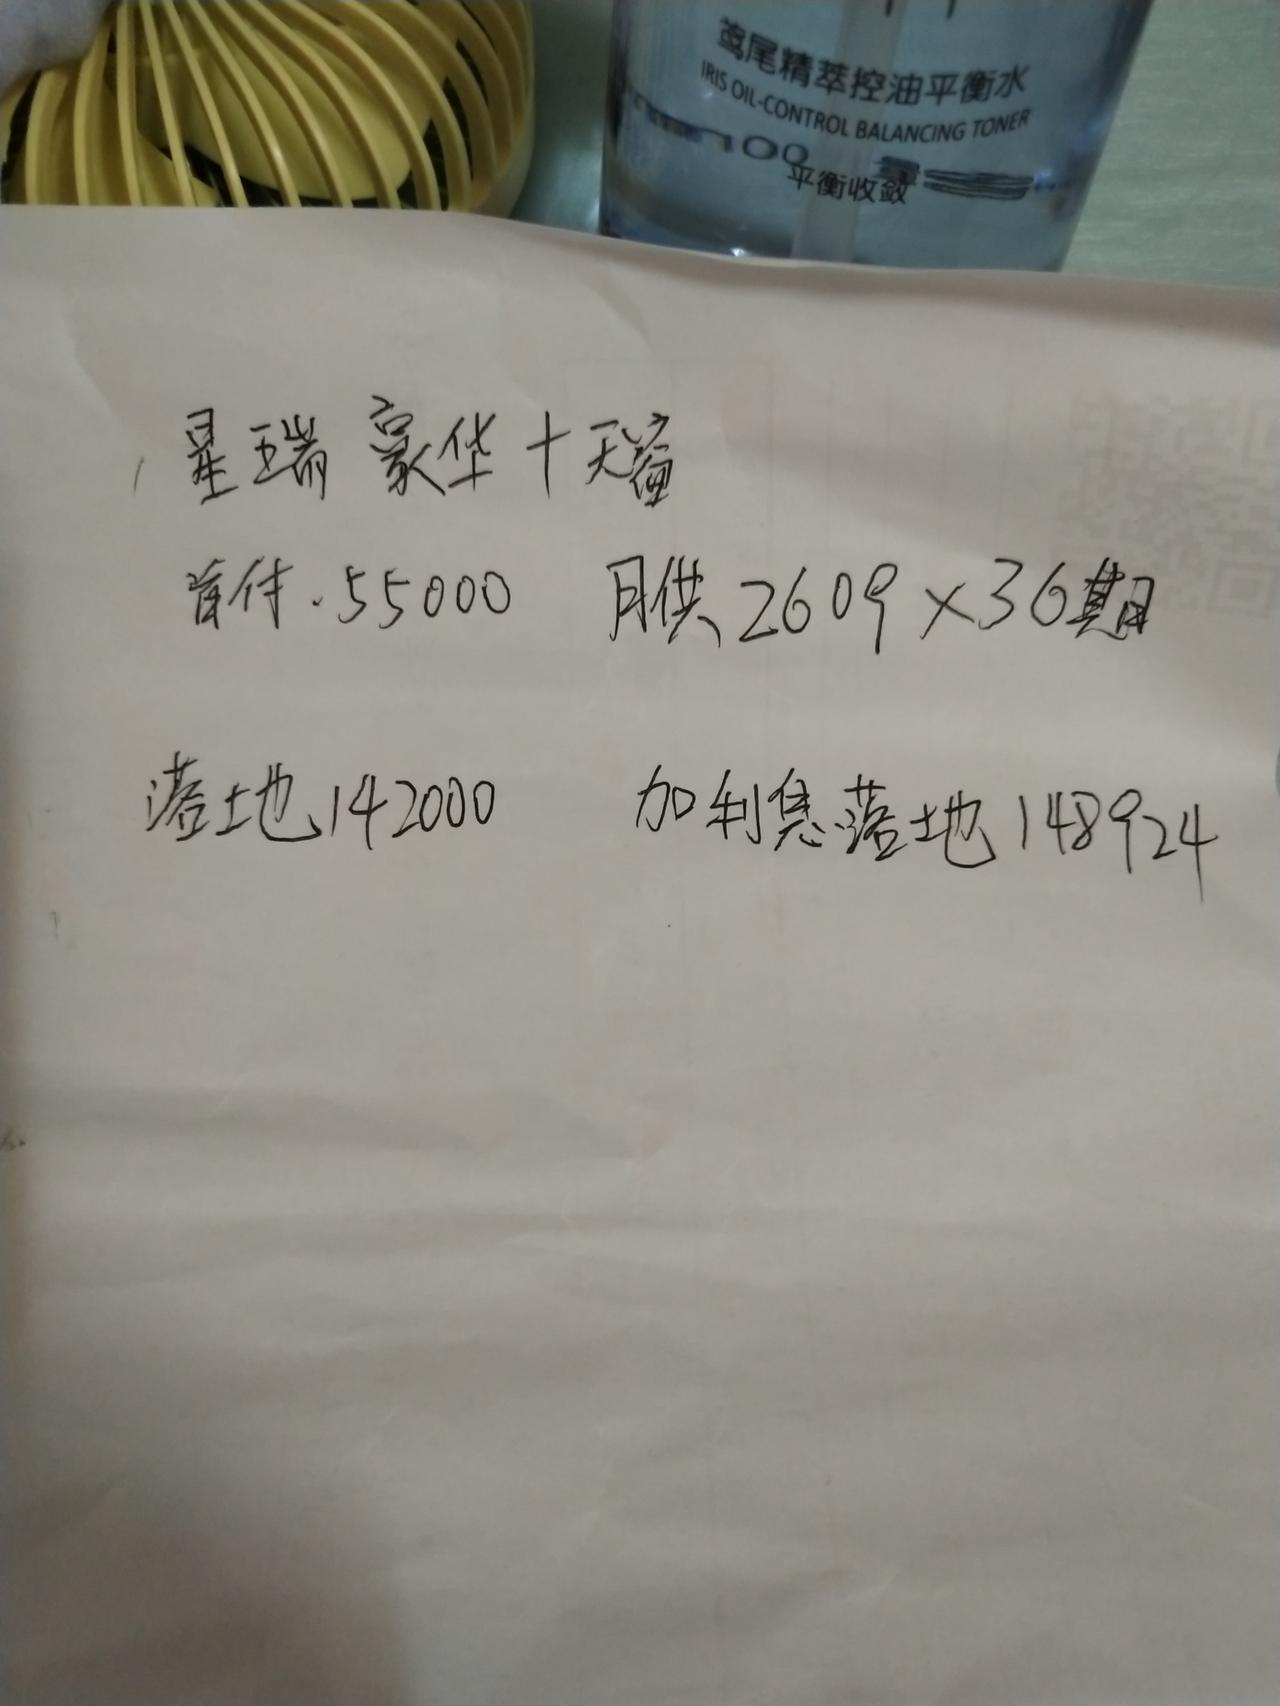 鸢尾精萃控油平衡水
IRIS OIL-CONTROL BALANCING TONER
平衡收敛
星瑞 豪华+天窗
首付.55000 月供2609×36期
落地142000 加利息落地148924